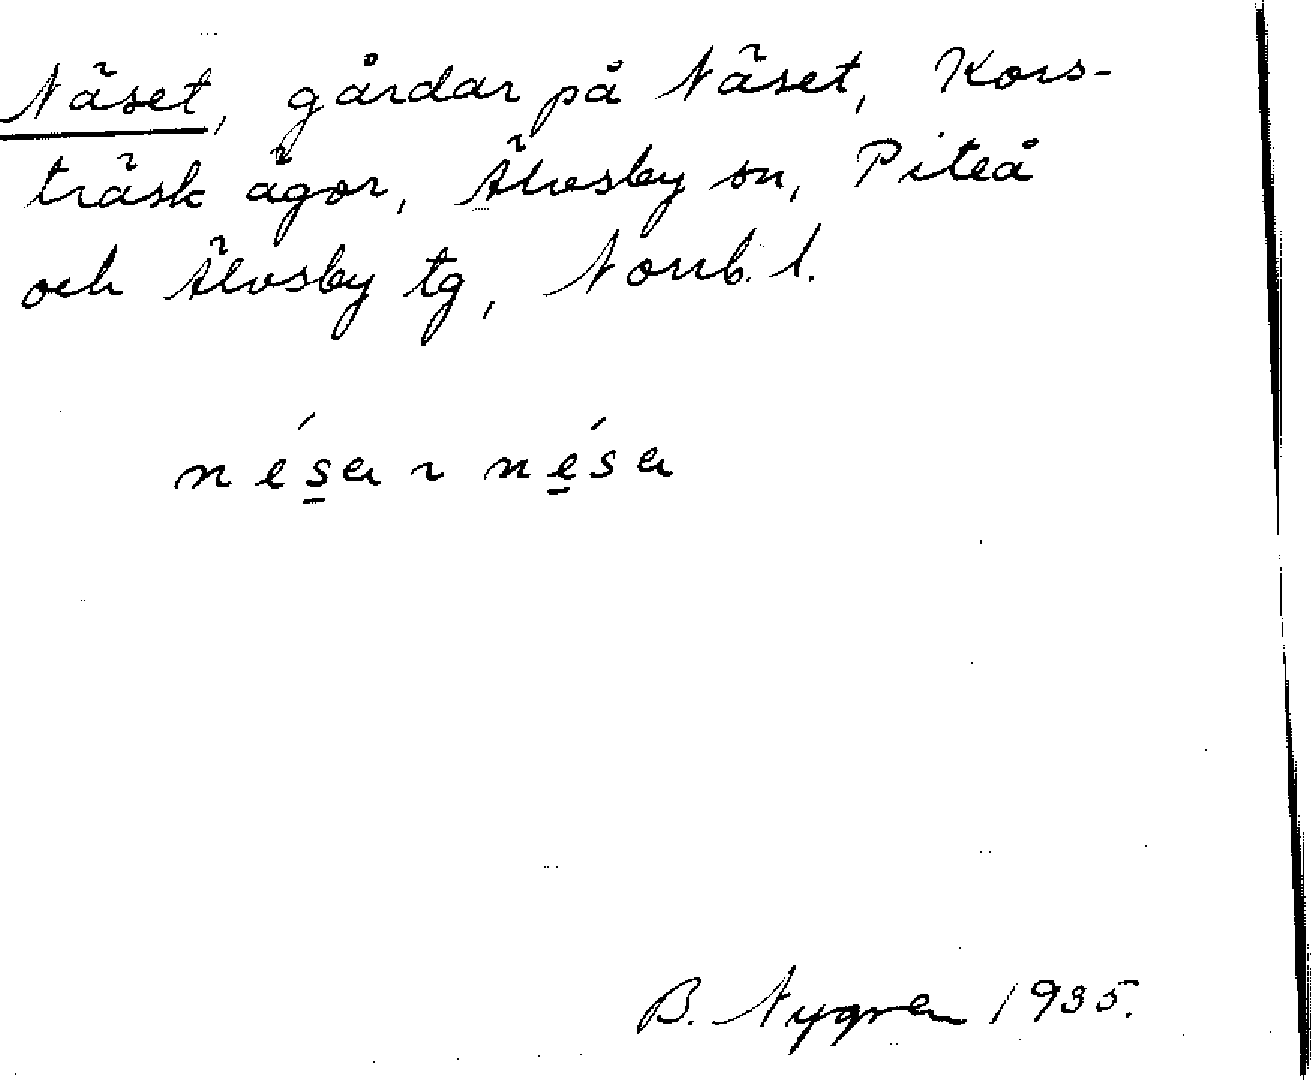 Näset, gårdar på Näset, Kors-
träsk ägor, Älvsby sn, Piteå
och Älvsby tg, Norrb. l.
né̱sa ~ né̱sa
B. Nygren 1935.